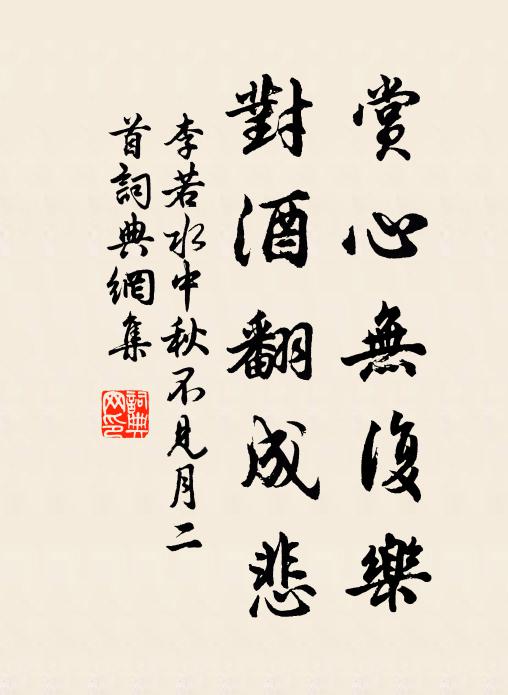 賞心無復樂
對酒翻成悲
李若水中秋不見月二
首詞典網集
詞典
网印